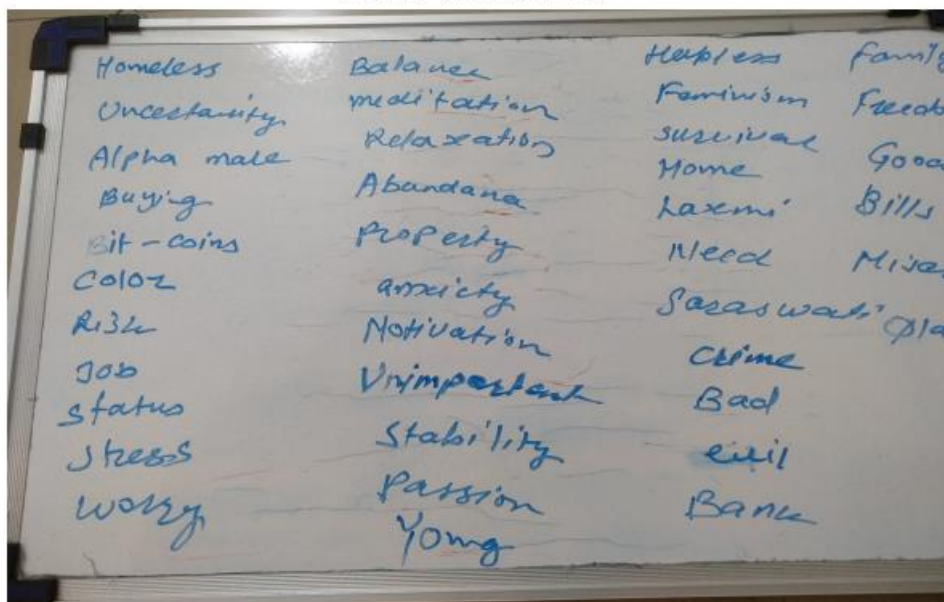 Homeless
Uncertainity
Alpha male
Buying
Bit-coins
Color
Risk
Job
Status
Stress
Worry
Balance
meditation
Relaxation
Abundana
Property
anxiety
Motivation
Unimportant
Stability
Passion
Helpless
Feminism
survival
Home
Laxmi
Need
Saraswati
Crime
Bad
evil
Bank
Family
Good
Bills